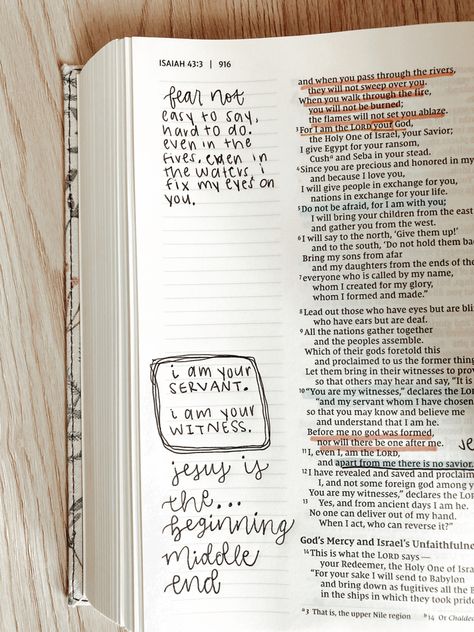 ISAIAH 43:3 | 916
fear not
easy to say,
hard to do.
even in the
fires, even in
the waters, i
fix my eyes on
you.
i am your
SERVANT.
i am your
WITNESS.
jesus is
the...
beginning
middle
end
and when you pass through the rivers,
they will not sweep over you.
When you walk through the fire,
you will not be burned;
the flames will not set you ablaze.
3 For I am the LORD your God,
the Holy One of Israel, your Savior;
I give Egypt for your ransom,
Cush a and Seba in your stead.
4 Since you are precious and honored in my
and because I love you,
I will give people in exchange for you,
nations in exchange for your life.
5 Do not be afraid, for I am with you;
I will bring your children from the east
and gather you from the west.
6 I will say to the north, ‘Give them up!’
and to the south, ‘Do not hold them
Bring my sons from afar
and my daughters from the ends of the
7 everyone who is called by my name,
whom I created for my glory,
whom I formed and made.”
8 Lead out those who have eyes but are
who have ears but are deaf.
9 All the nations gather together
and the peoples assemble.
Which of their gods foretold this
and proclaimed to us the former
Let them bring in their witnesses to
so that others may hear and say, “It is
10 “You are my witnesses,” declares the
“and my servant whom I have chosen
so that you may know and believe me
and understand that I am he.
Before me no god was formed,
nor will there be one after me.
11 I, even I, am the LORD,
and apart from me there is no savior.
12 I have revealed and saved and
I, and not some foreign god among
You are my witnesses,” declares the
13 Yes, and from ancient days I am he.
No one can deliver out of my hand.
When I act, who can reverse it?”
God’s Mercy and Israel’s Unfaithfulness
14 This is what the LORD says —
your Redeemer, the Holy One of
“For your sake I will send to Babylon
and bring down as fugitives all the
in the ships in which they took pride
a 3 That is, the upper Nile region b 14 Or